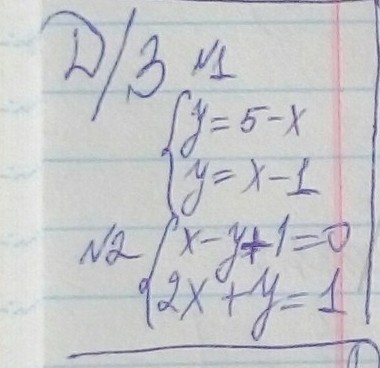 Д/З №1
{y = 5 - x
{y = x - 1
№2 {x - y + 1 = 0
{2x + y = 1